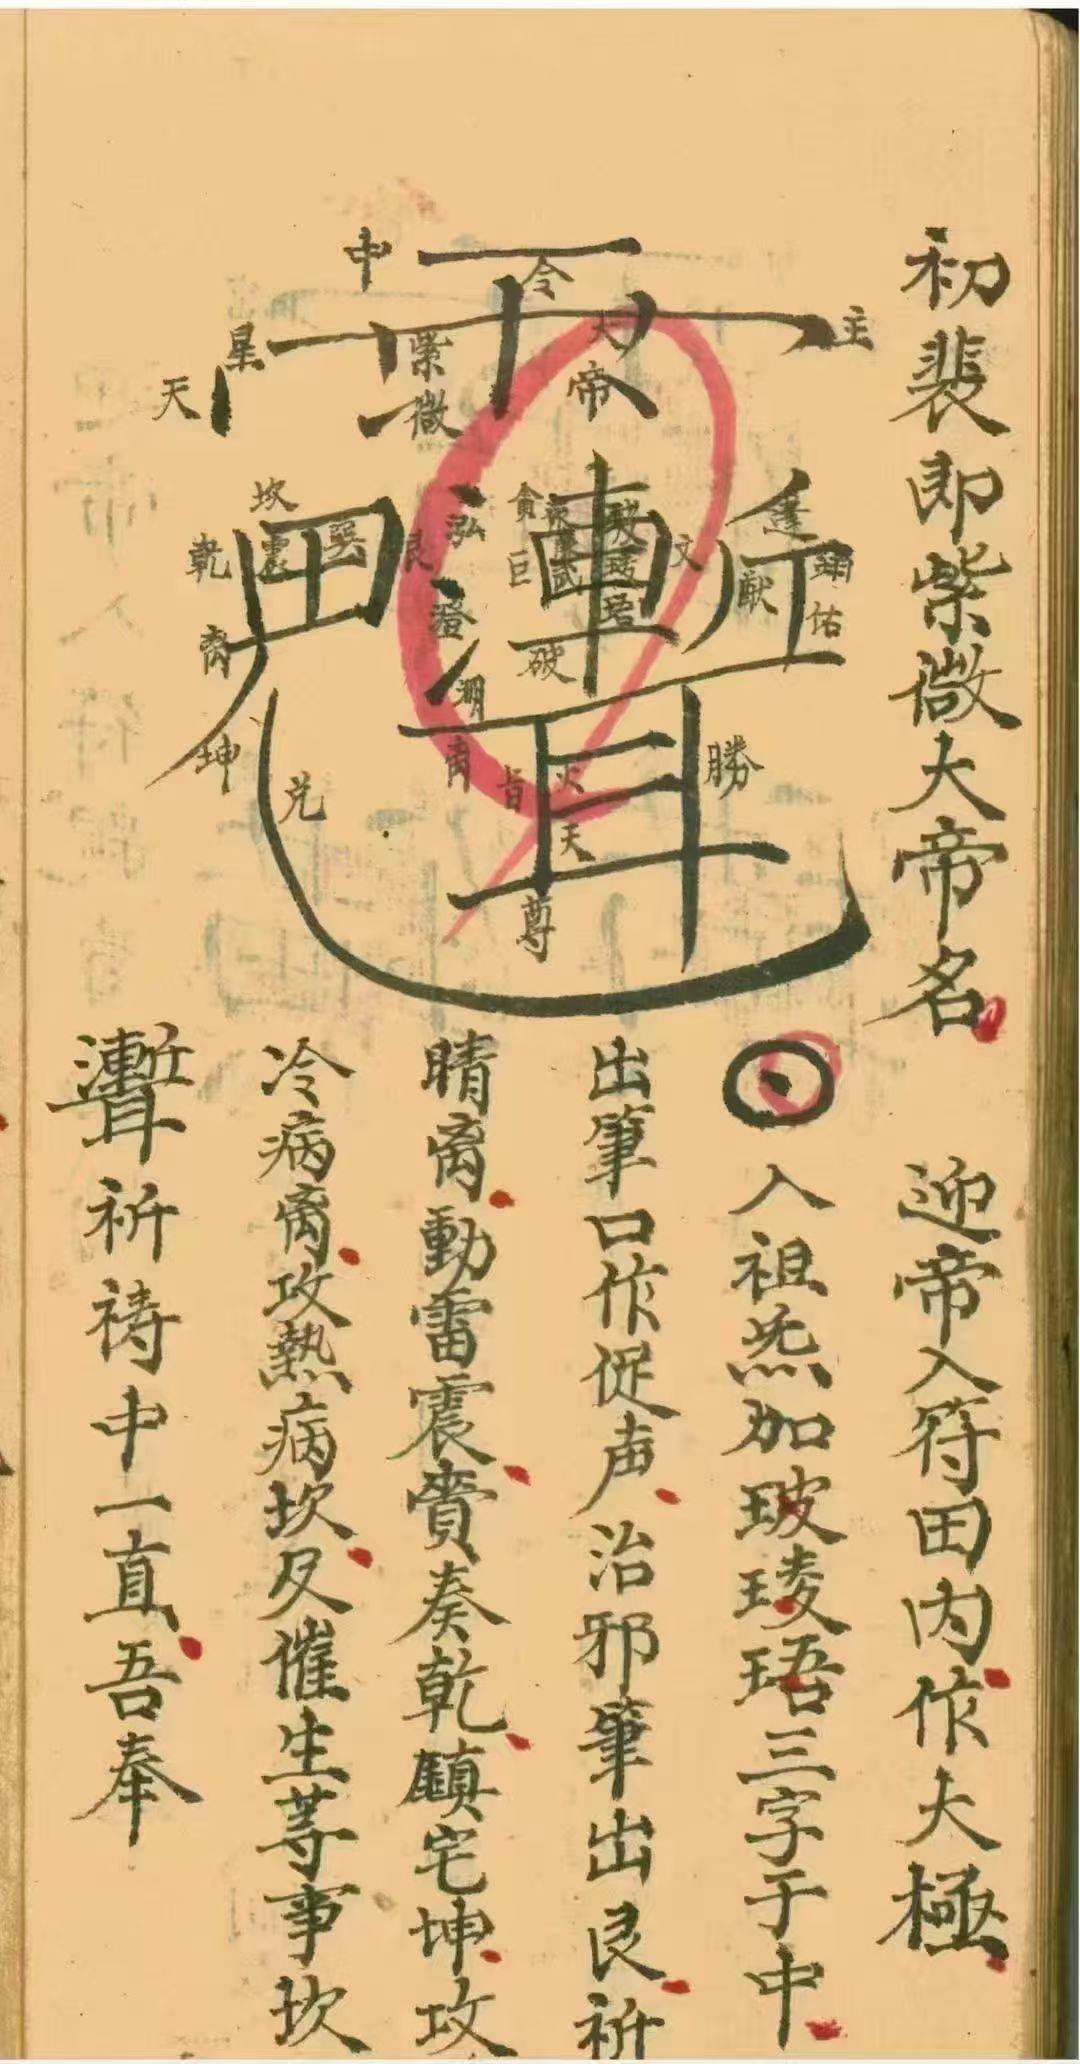 初裴即紫微大帝名 迎帝入符田内作大極
入祖炁加玻琖珸三字于中
出筆口作促声治邪筆出艮祈
晴离動雷震賫奏乾鎮宅坤攻
冷病离攻熱病坎及催生荨事坎
祈祷中一直吾奉
中
令
主
星
天
紫微
大帝
坎
乾
震
巽
艮
泓
澄
渊
貪
巨
武
文
破
猷
翊
佑
离
坤
兑
勝
火
天
尊